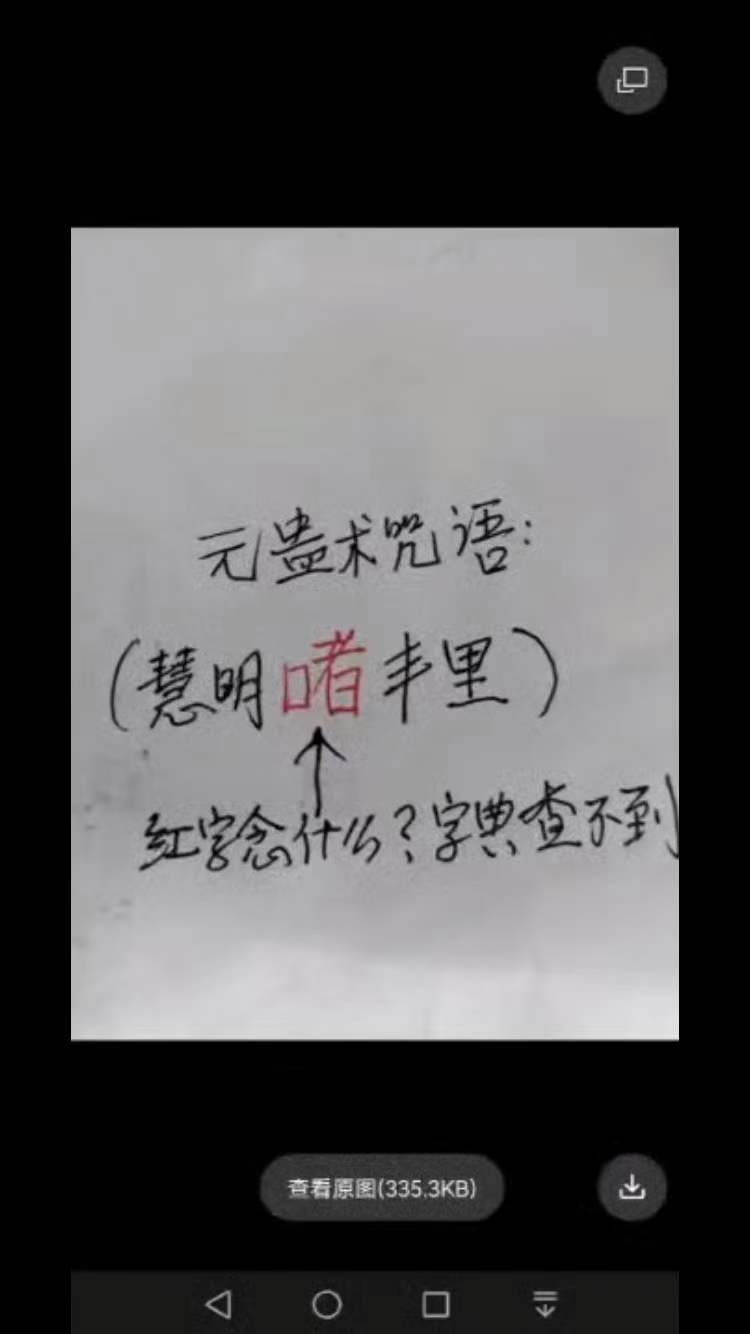 元蛊术咒语:
(慧明啫丰里)
红字念什么?字典查不到
查看原图(335.3KB)